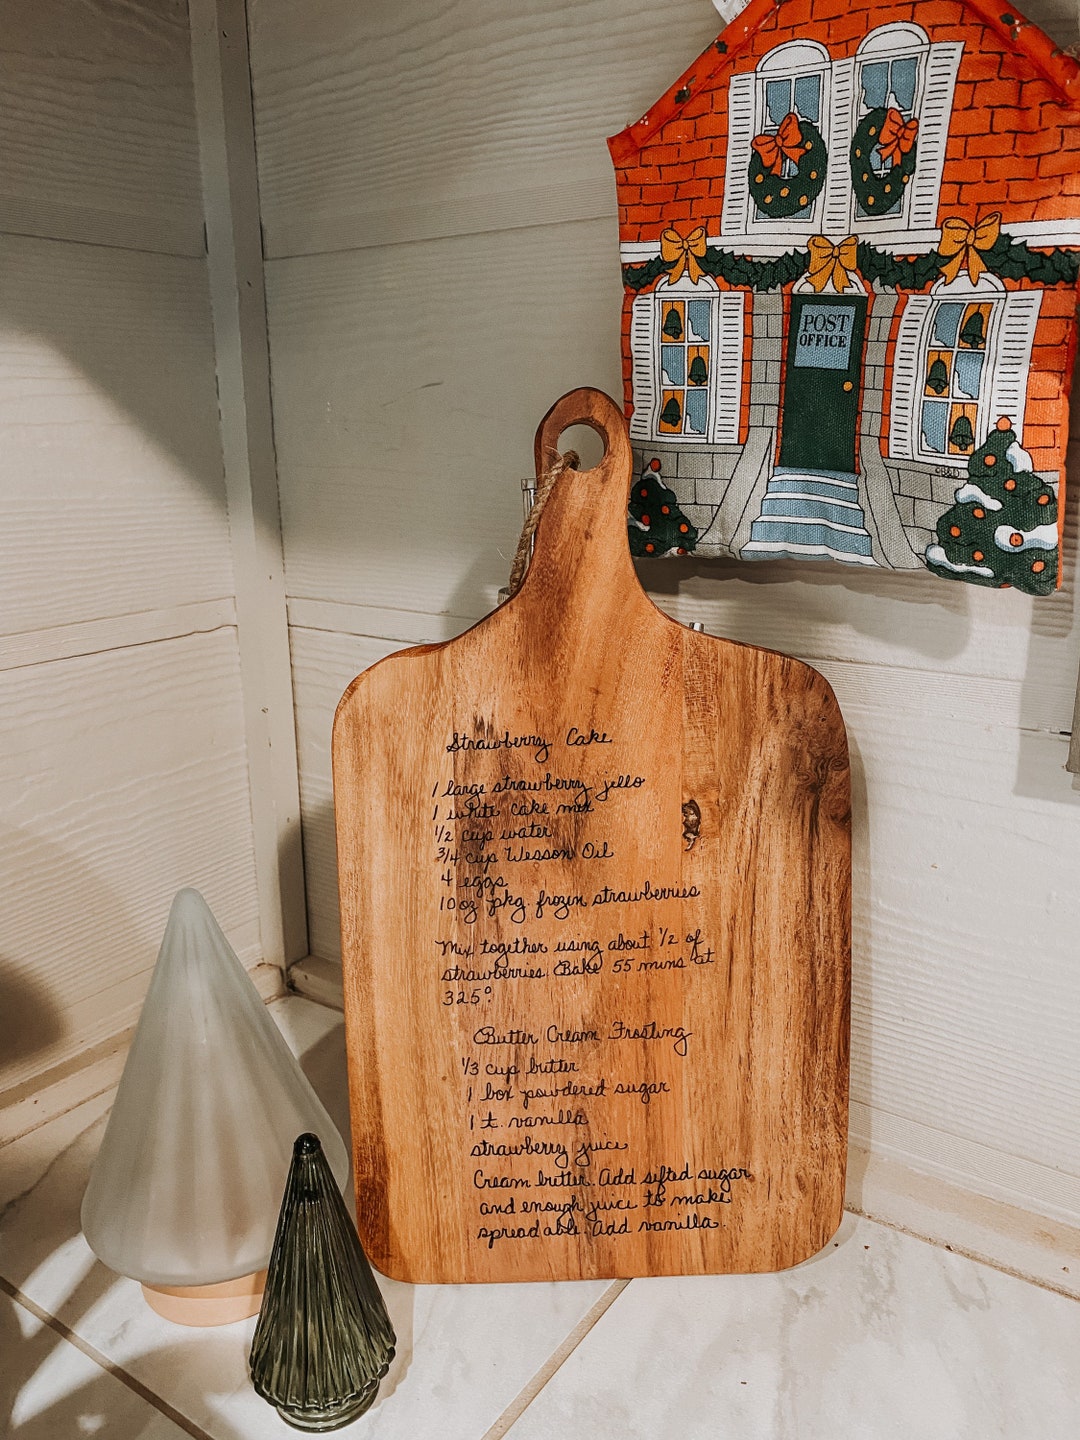 POST
OFFICE
Strawberry Cake
1 large strawberry jello
1 white cake mix
1/2 cup water
3/4 cup Wesson Oil
4 eggs
10 oz pkg. frozen strawberries
Mix together using about 1/2 of
strawberries. Bake 55 mins at
325°.
Butter Cream Frosting
1/3 cup butter
1 box powdered sugar
1 t. vanilla
strawberry juice
Cream butter. Add sifted sugar
and enough juice to make
spreadable. Add vanilla.